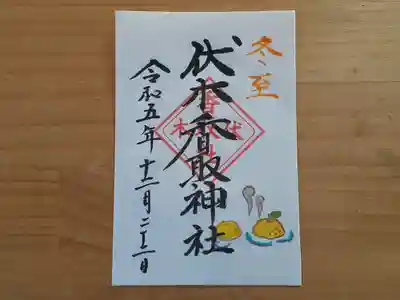 冬至
伏木香取神社
令和五年十二月二十二日